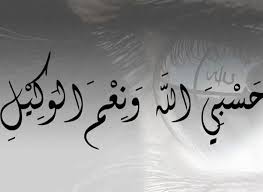 حَسْبِيَ اللَّه وَنِعْمَ الوَكِيْلِ